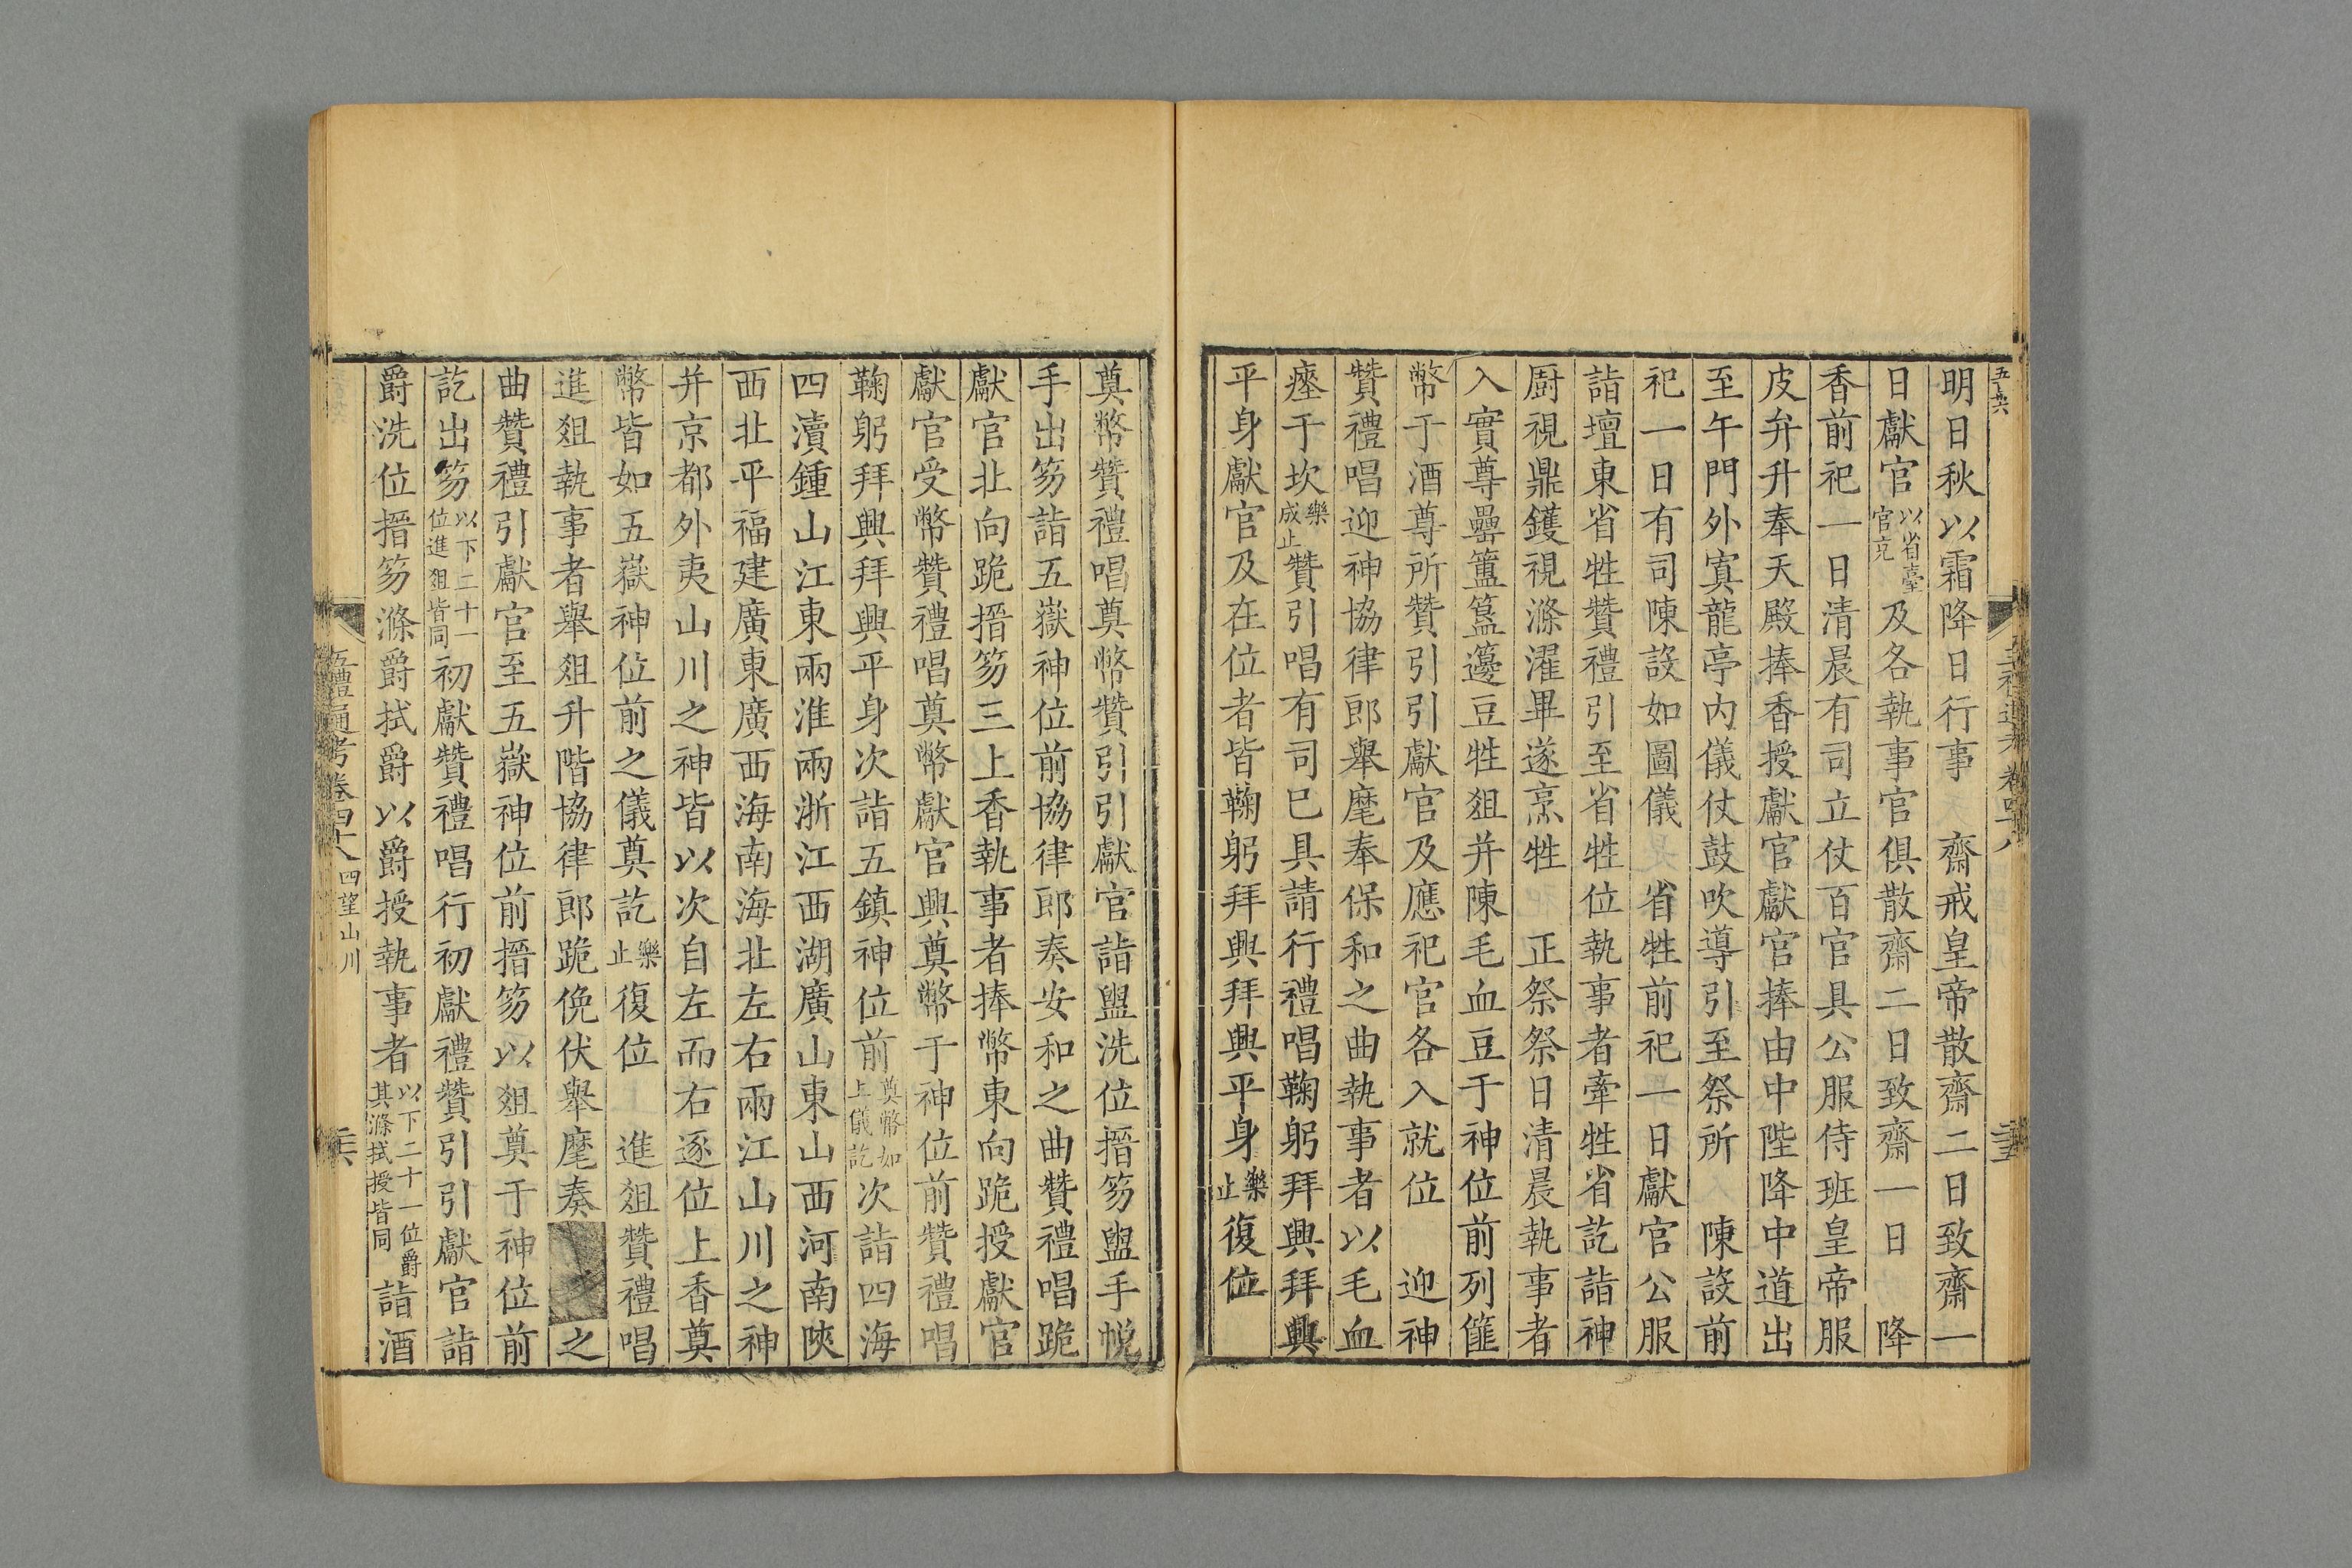 明日秋以霜降日行事 齋戒皇帝散齋二日致齋一
日獻官以省臺官充及各執事官俱散齋二日致齋一日 降
香前祀一日清晨有司立仗百官具公服侍班皇帝服
皮弁升奉天殿捧香授獻官獻官捧由中陛降中道出
至午門外寘龍亭内儀仗鼓吹導引至祭所 陳設前
祀一日有司陳設如圖儀 省牲前祀一日獻官公服
詣壇東省牲贊禮引至省牲位執事者牽牲省訖詣神
厨視鼎鑊視滌濯畢遂烹牲 正祭祭日清晨執事者
入實尊罍簠簋籩豆牲爼并陳毛血豆于神位前列篚
幣于酒尊所贊引引獻官及應祀官各入就位 迎神
贊禮唱迎神協律郎舉麾奉保和之曲執事者以毛血
瘞于坎樂成止贊引唱有司巳具請行禮唱鞠躬拜興拜興
平身獻官及在位者皆鞠躬拜興拜興平身樂止復位
奠幣贊禮唱奠幣贊引引獻官詣盥洗位搢笏盥手帨
手出笏詣五嶽神位前協律郎奏安和之曲贊禮唱跪
獻官北向跪搢笏三上香執事者捧幣東向跪授獻官
獻官受幣贊禮唱奠幣獻官興奠幣于神位前贊禮唱
鞠躬拜興拜興平身次詣五鎮神位前奠幣如上儀訖次詣四海
四瀆鍾山江東兩淮兩浙江西湖廣山東山西河南陝
西北平福建廣東廣西海南海北左右兩江山川之神
并京都外夷山川之神皆以次自左而右逐位上香奠
幣皆如五嶽神位前之儀奠訖樂止復位 進爼贊禮唱
進爼執事者舉爼升階協律郎跪俛伏舉麾奏之
曲贊禮引獻官至五嶽神位前搢笏以爼奠于神位前
訖出笏以下二十一位進爼皆同初獻贊禮唱行初獻禮贊引引獻官詣
爵洗位搢笏滌爵拭爵以爵授執事者以下二十一位爵其滌拭授皆同詣酒
五禮通考卷四十八四望山川